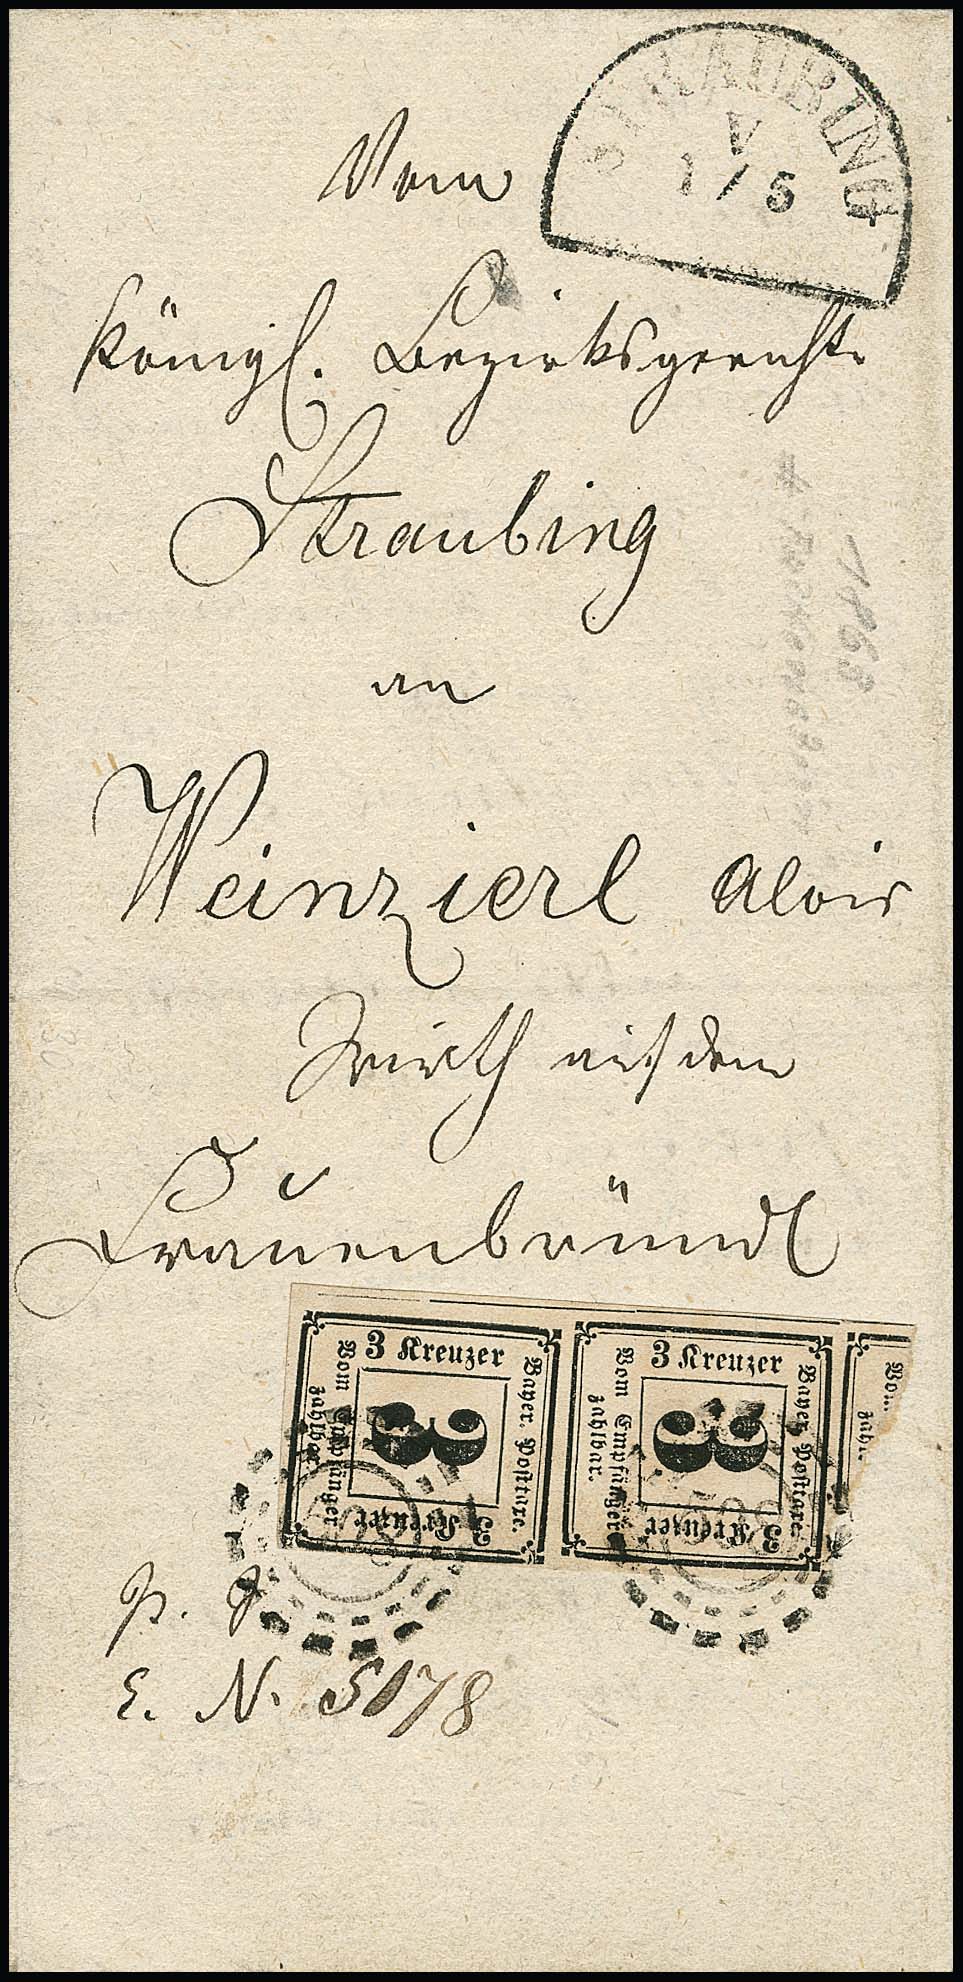 STRAUBING
V
1 / 5
Vom
Königl. Bezirksgericht
Straubing
an
Weinzierl Alois
Wirth auf dem
Frauenbründl
3 Kreuzer
Bayer. Posttaxe.
Vom Empfänger
zahlbar.
3 Kreuzer
3
3 Kreuzer
Bayer. Posttaxe.
Vom Empfänger
zahlbar.
3 Kreuzer
3
Vo
zahl
p. S.
E. N. 5178